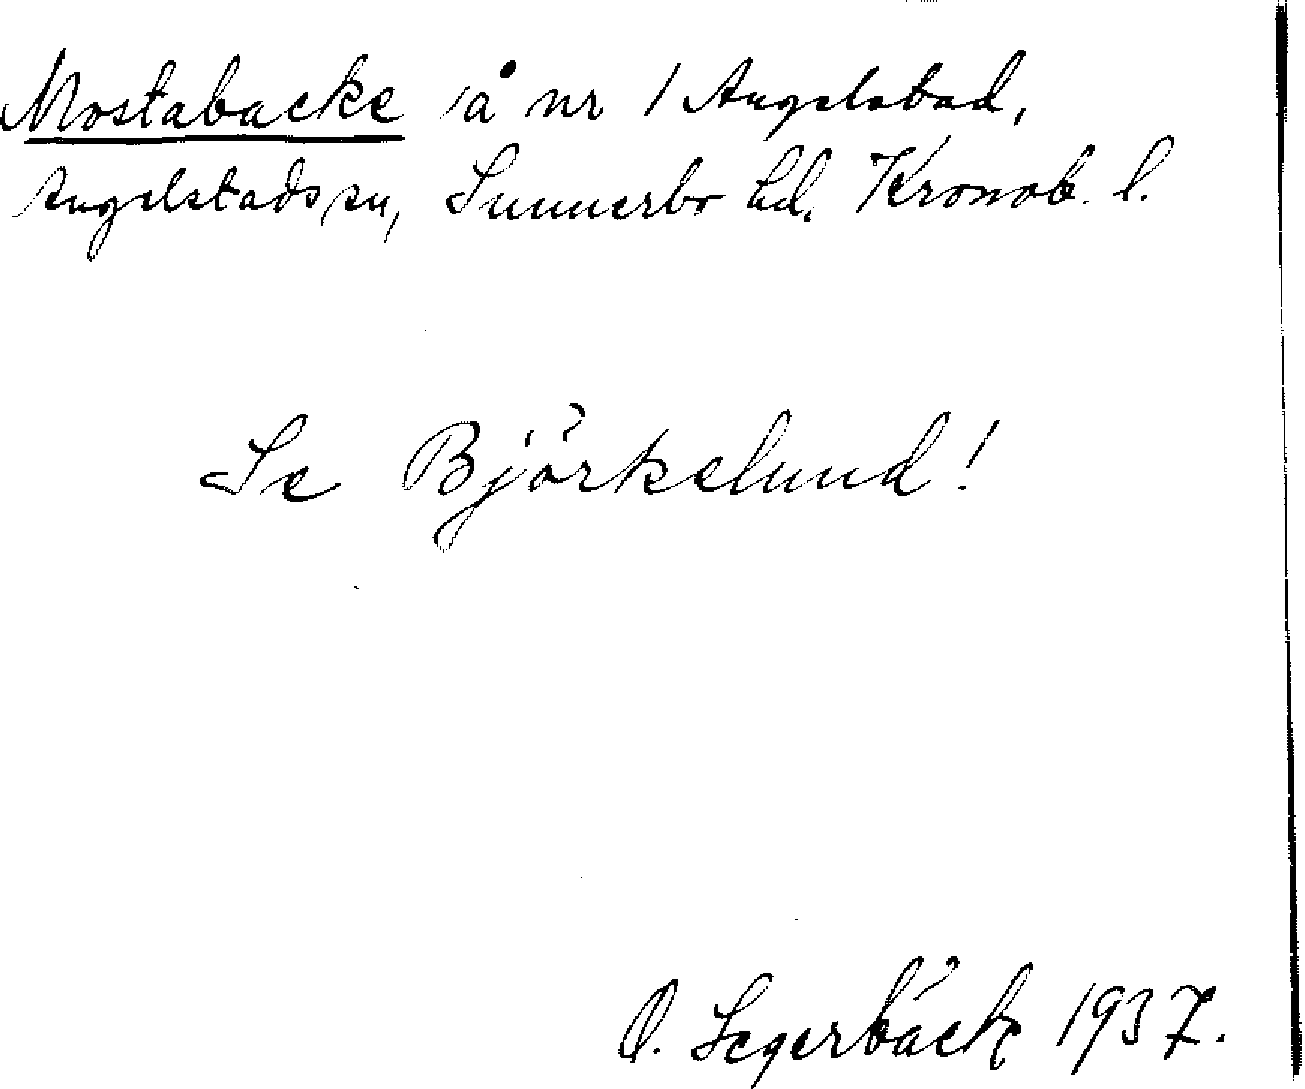 Mostabacke å nr 1 Angelstad,
Angelstads sn, Sunnerbo hd. Kronob. l.
Se Björkelund!
O. Segerbäck 1937.